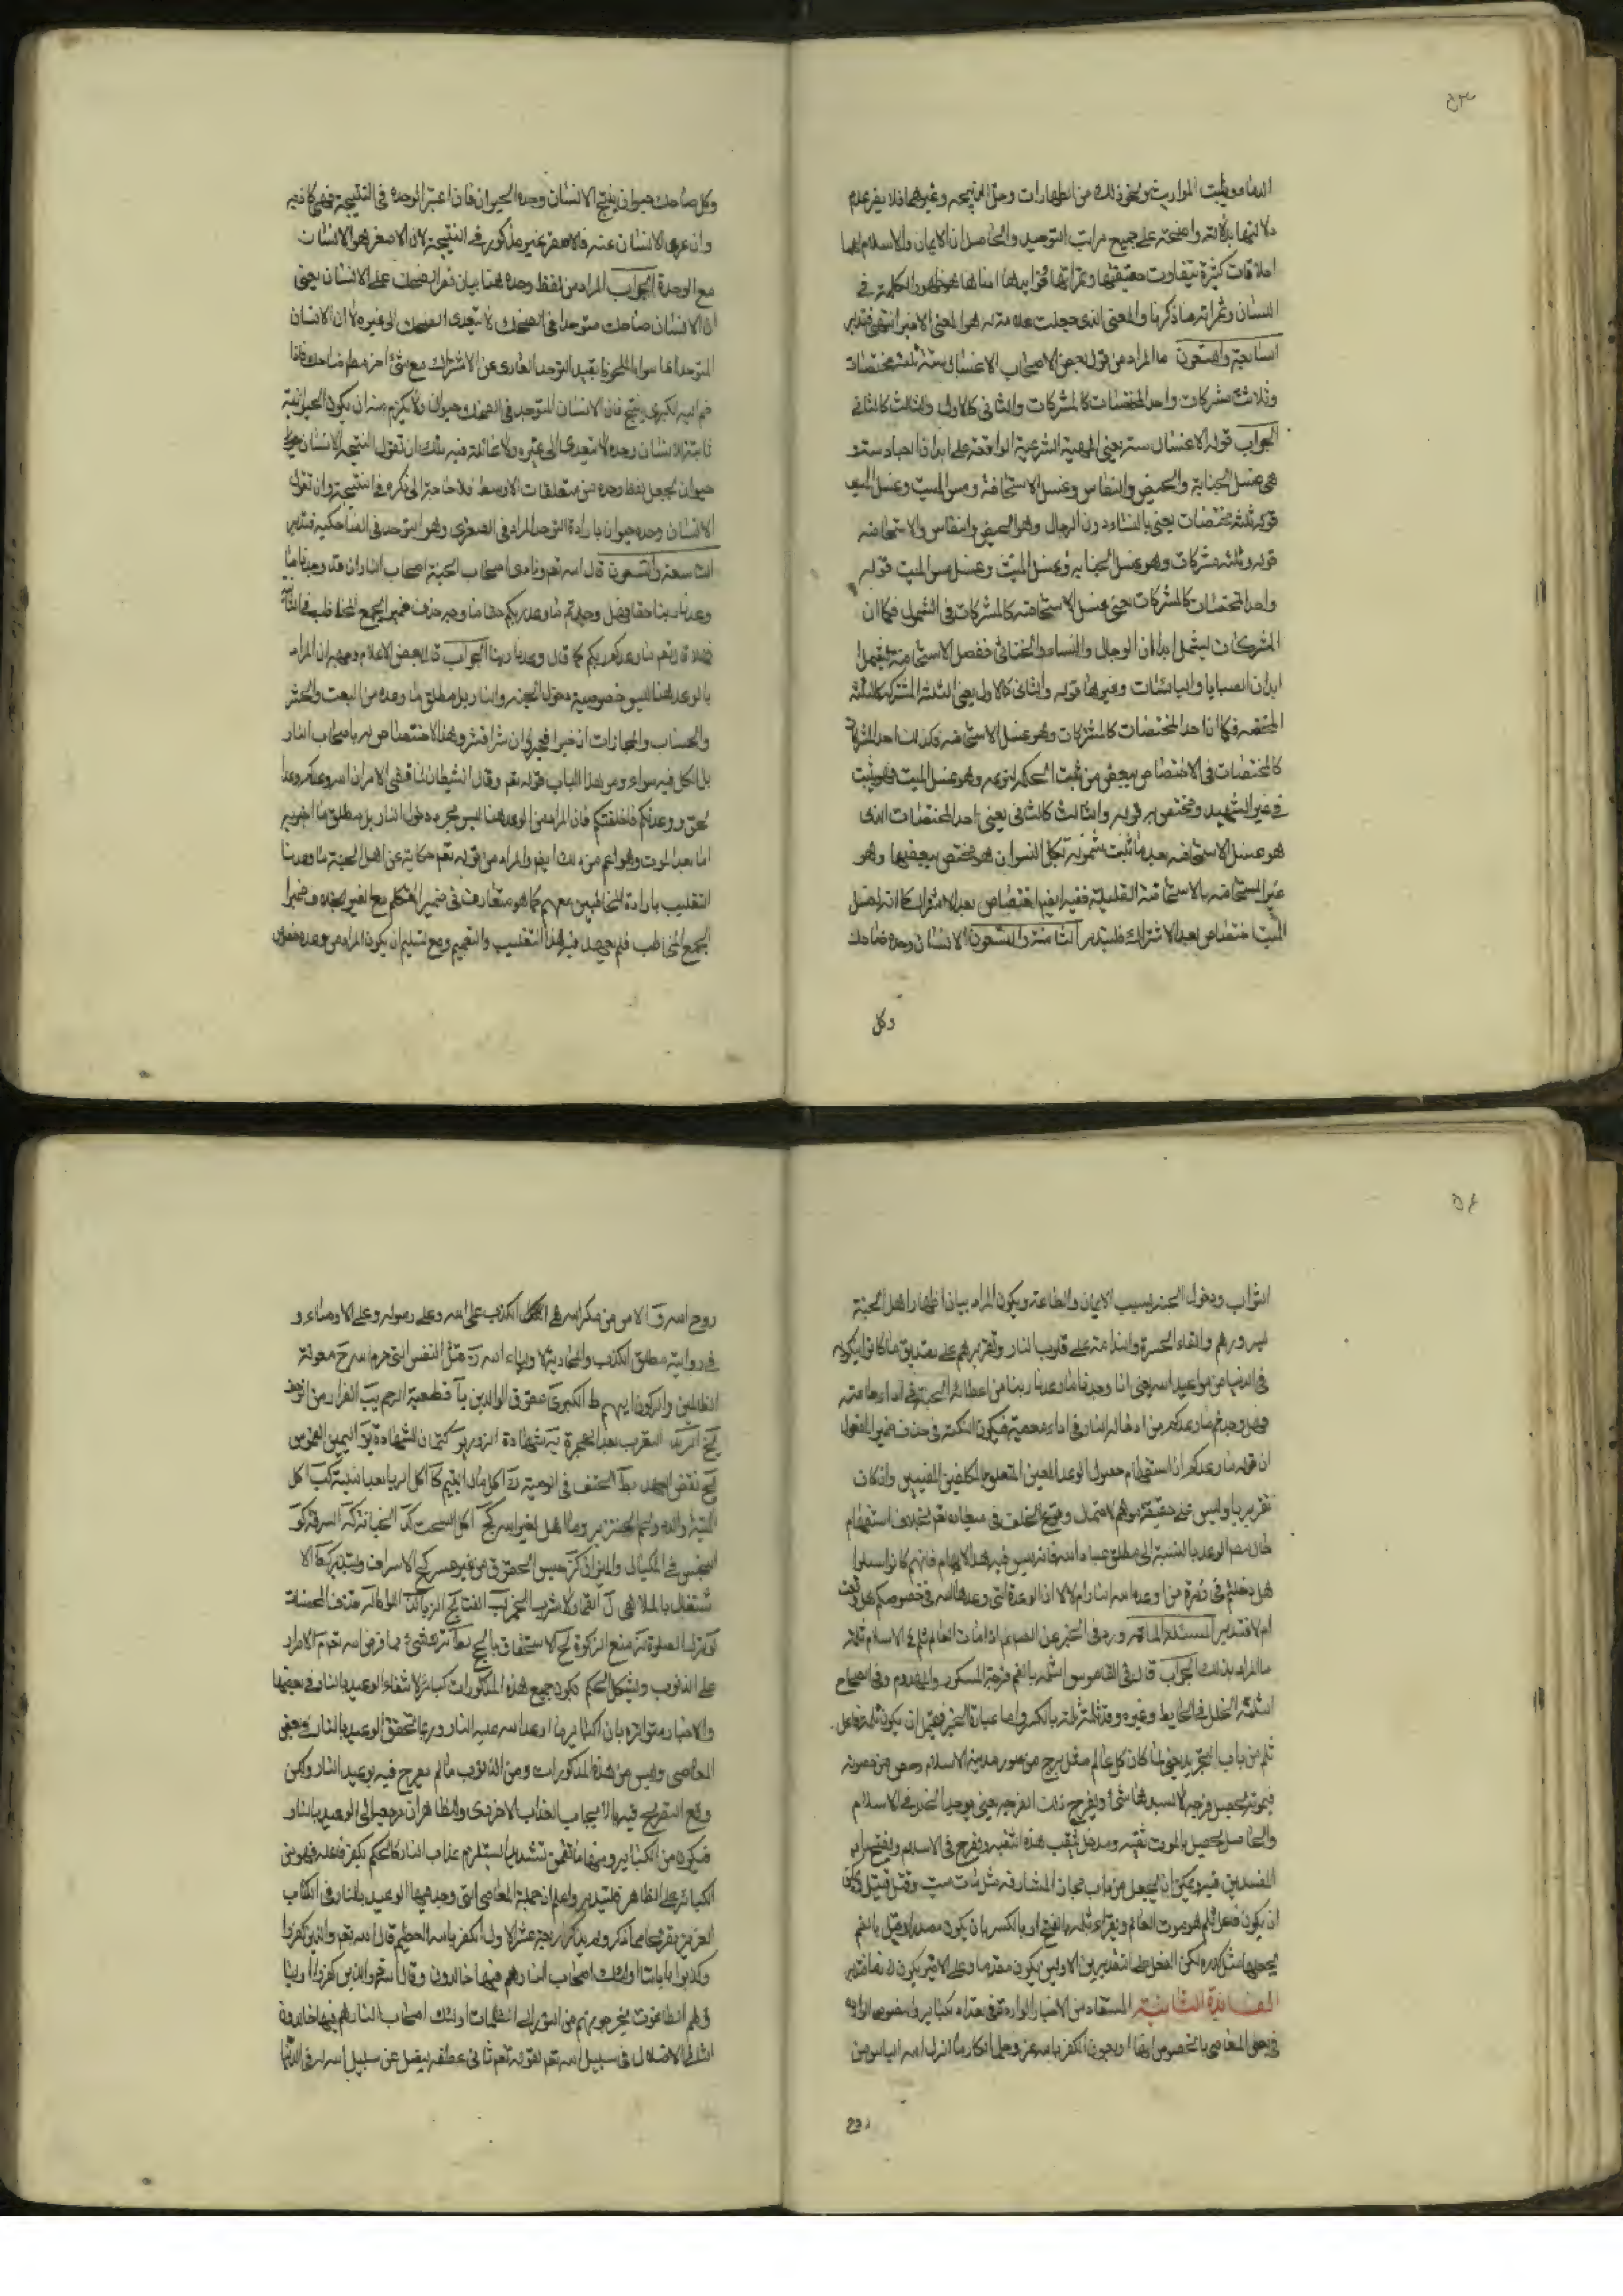 ٥٣
الدماء ويثبت المواريث ونحو ذلك من الطهارات وحل الذبيحة وغيرها فلا يضر عدم
دلالتها بدلالة واضحة على جميع مراتب التوحيد والحاصل ان الايمان والاسلام لهما
اطلاقات كثيرة تتفاوت حقيقتها وثمراتها
اللسان وثمراته ما ذكرنا والمعنى الذي جعلت علامته هو المعنى الاخير انتهى فتدبر
السابعة والتسعون ما المراد من قول بعض الاصحاب الاغسال ستة ثلثة مختصات
وثلاثة مشتركات واحد المختصات كالمشتركات والثاني كالاول والثالث كالثاني
الجواب قوله الاغسال ستة يعني المهية الشرعية الواقعة على ابدان العباد ستة و
هي غسل الجنابة والحيض والنفاس وغسل الاستحاضة ومس الميت وغسل الميت
قوله ثلثة مختصات يعني بالنساء دون الرجال وهو الحيض والنفاس والاستحاضة
قوله وثلثة مشتركات وهو غسل الجنابة وغسل الميت وغسل مس الميت قوله
واحد المختصات كالمشتركات يعني غسل الاستحاضة كالمشتركات في الشمول فكما ان
المشتركات يشمل ابدان الرجال والنساء والخناثى فغسل الاستحاضة يشمل
ابدان الصبايا واليائسات وغيرها قوله والثاني كالاول يعني الثلثة المشتركة كالثلثة
المختصة فكما ان احد المختصات كالمشتركات وهو غسل الاستحاضة وكذلك احد المشتركات
كالمختصات في الاختصاص ببعض من ثبت الحكم لنوعه وهو غسل الميت فهو يثبت
في غير الشهيد ومختص به قوله والثالث كالثاني يعني احد المختصات الذي
هو غسل الاستحاضة بعد ما ثبت شموله لكل النسوان هو مختص ببعضها وهو
غير المستحاضة بالاستحاضة القليلة ففيه ايضا اختصاص بعد الاشتراك كما انه لغسل
الميت اختصاص بعد الاشتراك فليتدبر الثامنة والتسعون الانسان وحده ضاحك
وكل
وكل ضاحك حيوان ينتج الانسان وحده الحيوان فان اعتبر الوحدة في النتيجة فهي كاذبة
وان عرى الانسان عنه فالاصغر غير مذكور في النتيجة لان الاصغر هو الانسان
مع الوحدة الجواب المراد من لفظ وحده هنا بيان قصر الضحك على الانسان يعني
ان الانسان ضاحك متوحدا في الضحك لا يتعدى الضحك الى غيره لا ان الانسان
المتوحد
ضم اليه الكبرى ينتج فان الانسان المتوحد في الضحك حيوان ولا يلزم منه ان يكون الحيوانية
ثابتة للانسان وحده لا تتعدى الى غيره ولا غائلة فيه فلك ان تقول النتيجة الانسان
حيوان لجعل لفظ وحده من متعلقات الاوسط فلا حاجة الى ذكره في النتيجة وان تقول
الانسان وحده حيوان بارادة التوحد المراد في الصغرى وهو التوحد في الضاحكية فتدبر
التاسعة والتسعون قال الله تعم ونادى اصحاب الجنة اصحاب النار ان قد وجدنا ما
وعدنا ربنا حقا فهل وجدتم ما وعد ربكم حقا ما وجه حذف ضمير الجمع المخاطب في الثاني
فهلا قال نعم ما وعدكم ربكم كما قال وعدنا ربنا الجواب قال بعض الاعلام وجهه ان المراد
بالوعد هنا ليس خصوصية دخول الجنة والنار بل مطلق ما وعده من البعث والحشر
والحساب والمجازات ان خيرا فخير وان شرا فشر وهذا لا اختصاص له باصحاب النار
بل الكل فيه سواء ومن هذا الباب قوله تعم وقال الشيطان لما قضي الامر ان الله وعدكم وعد
الحق ووعدتكم فاخلفتكم فان المراد من الوعد هنا ليس مجرد دخول النار بل مطلق ما اخبر به
اما بعد الموت وهو اعم من ذلك ايضا والمراد من قوله تعم حكاية عن اهل الجنة ما وعدنا
التغليب بارادة المخاطبين معهم كما هو متعارف في ضمير المتكلم مع الغير بخلاف ضمير
الجمع المخاطب فلم يحصل فيه هذا التغليب والتعميم ومع تسليم ان يكون المراد من وعده خصوص
٥٤
الثواب ودخول الجنة بسبب الايمان والطاعة ويكون المراد بيان اظهار اهل الجنة
سرورهم والقاء الحسرة والندامة على قلوب النار وتقريرهم على تصديق ما كانوا
في الدنيا من مواعيد الله يعني انا وجدنا ما وعدنا ربنا من اعطاء الجنة في اداء طاعته
وهل وجدتم ما وعدكم من ادخال النار في اداء معصيته فيكون النكتة في حذف ضمير المفعول
ان قوله ما وعدكم ان استفهام حصول الوعد المعين المتعلق بالمكلفين المعينين وان كان
تقريريا وليس على حقيقته يوهم لاحتمال وقوع الخلف في ميعاده تعم بخلاف استفهام
حال مطلق الوعد بالنسبة الى مطلق عباد الله فانه ليس فيه هذا الايهام فانهم كانوا سئلوا
هل دخلتم في زمرة من اوعده الله النار ام لا لا ان الوعدة التي وعدها الله في خصوصكم هل وقعت
ام لا فتدبر المسئلة المائة ورد في الخبر عن الصم اذا مات العالم ثلم في الاسلام ثلمة
ما المراد بذلك الجواب قال في القاموس الثلمة بالضم فرجة المكسور والمهدوم وفي الصحاح
الثلمة الخلل في الحايط وغيره وقد ثلمته اثلمه بالكسر واما عبارة الخبر فيحتمل ان يكون ثلمة فاعل
ثلم من باب التجريد يعني لما كان كل عالم مثل برج من سور مدينة الاسلام وحصن من حصونه
فبموته يحصل فرجة لا يسدها شيء ويفرج ذلك الفرجة يعني يوجب الخلل في الاسلام
والحاصل يحصل بالموت ثقبة ومدخل يثقب هذا الثقبة ويفرج في الاسلام ويفتح
المفسدين فيه ويمكن ان يجعل من باب مجاز المشارفة مثل مات ميت وقتل قتيل ويمكن
ان يكون فاعل ثلم هو موت العالم ويقرء ثلمة بالفتح او بالكسر بان يكون مصدرا وقيل بالضم
بجعلها مثل لكن الفعل على التقديرين الاولين يكون متعديا وعلى الاخير يكون لازما فتدبر
الفائدة الثانية المستفاد من الاخبار الواردة في تعداد الكبائر والنصوص الواردة
في بعض المعاصي بالخصوص انها اربعون الكفر بالله عز وجل انكار ما انزل الله الياس من
روح
روح الله الامن من مكر الله الكذب على الله وعلى رسوله وعلى الاوصياء و
في رواية مطلق الكذب والمحاربة لاولياء الله قتل النفس التي حرم الله معونة
الظالمين والركون اليهم الكبر عقوق الوالدين قطيعة الرحم الفرار من الزحف
التعرب بعد الهجرة شهادة الزور كتمان الشهادة اليمين الغموس
نقض العهد الحيف في الوصية اكل مال اليتيم اكل الربا بعد البينة اكل
الميتة والدم ولحم الخنزير وما اهل لغير الله اكل السحت الخيانة السرقة
البخس في المكيال والميزان حبس الحقوق من غير عسر الاسراف والتبذير الا
شتغال بالملاهي القمار شرب الخمر الغناء الزنا اللواط قذف المحصنات
ترك الصلوة منع الزكوة الاستخفاف بالحج ترك شيء مما فرض الله تعم الاصرار
على الذنوب ويشكل الحكم بكون جميع هذه المذكورات كبائر لانتفاء الوعيد بالنار في بعضها
والاخبار متواترة بان الكبائر ما اوعد الله عليه النار وربما تحقق الوعيد بالنار في بعض
المعاصي وليس من هذه المذكورات ومن الذنوب ما لم يصرح فيه بوعيد النار ولكن
وقع التصريح فيه بالايجاب العذاب الاخروي والظاهر ان مرجعه الى الوعيد بالنار
فيكون من الكبائر ومنها ما تضمن تشديدا يستلزم عذاب النار كالحكم بكفر فاعله فهو من
الكبائر على الظاهر فليتدبر واعلم ان جملة المعاصي التي وجد فيها الوعيد بالنار في الكتاب
العزيز اربعة عشر الاول الكفر بالله العظيم قال الله تعم والذين كفروا
وكذبوا باياتنا اولئك اصحاب النار هم فيها خالدون وقال تعم والذين كفروا اوليا
ؤهم الطاغوت يخرجونهم من النور الى الظلمات اولئك اصحاب النار هم فيها خالدون
الثاني الاضلال في سبيل الله تعم لقوله تعم ثاني عطفه ليضل عن سبيل الله له في الدنيا